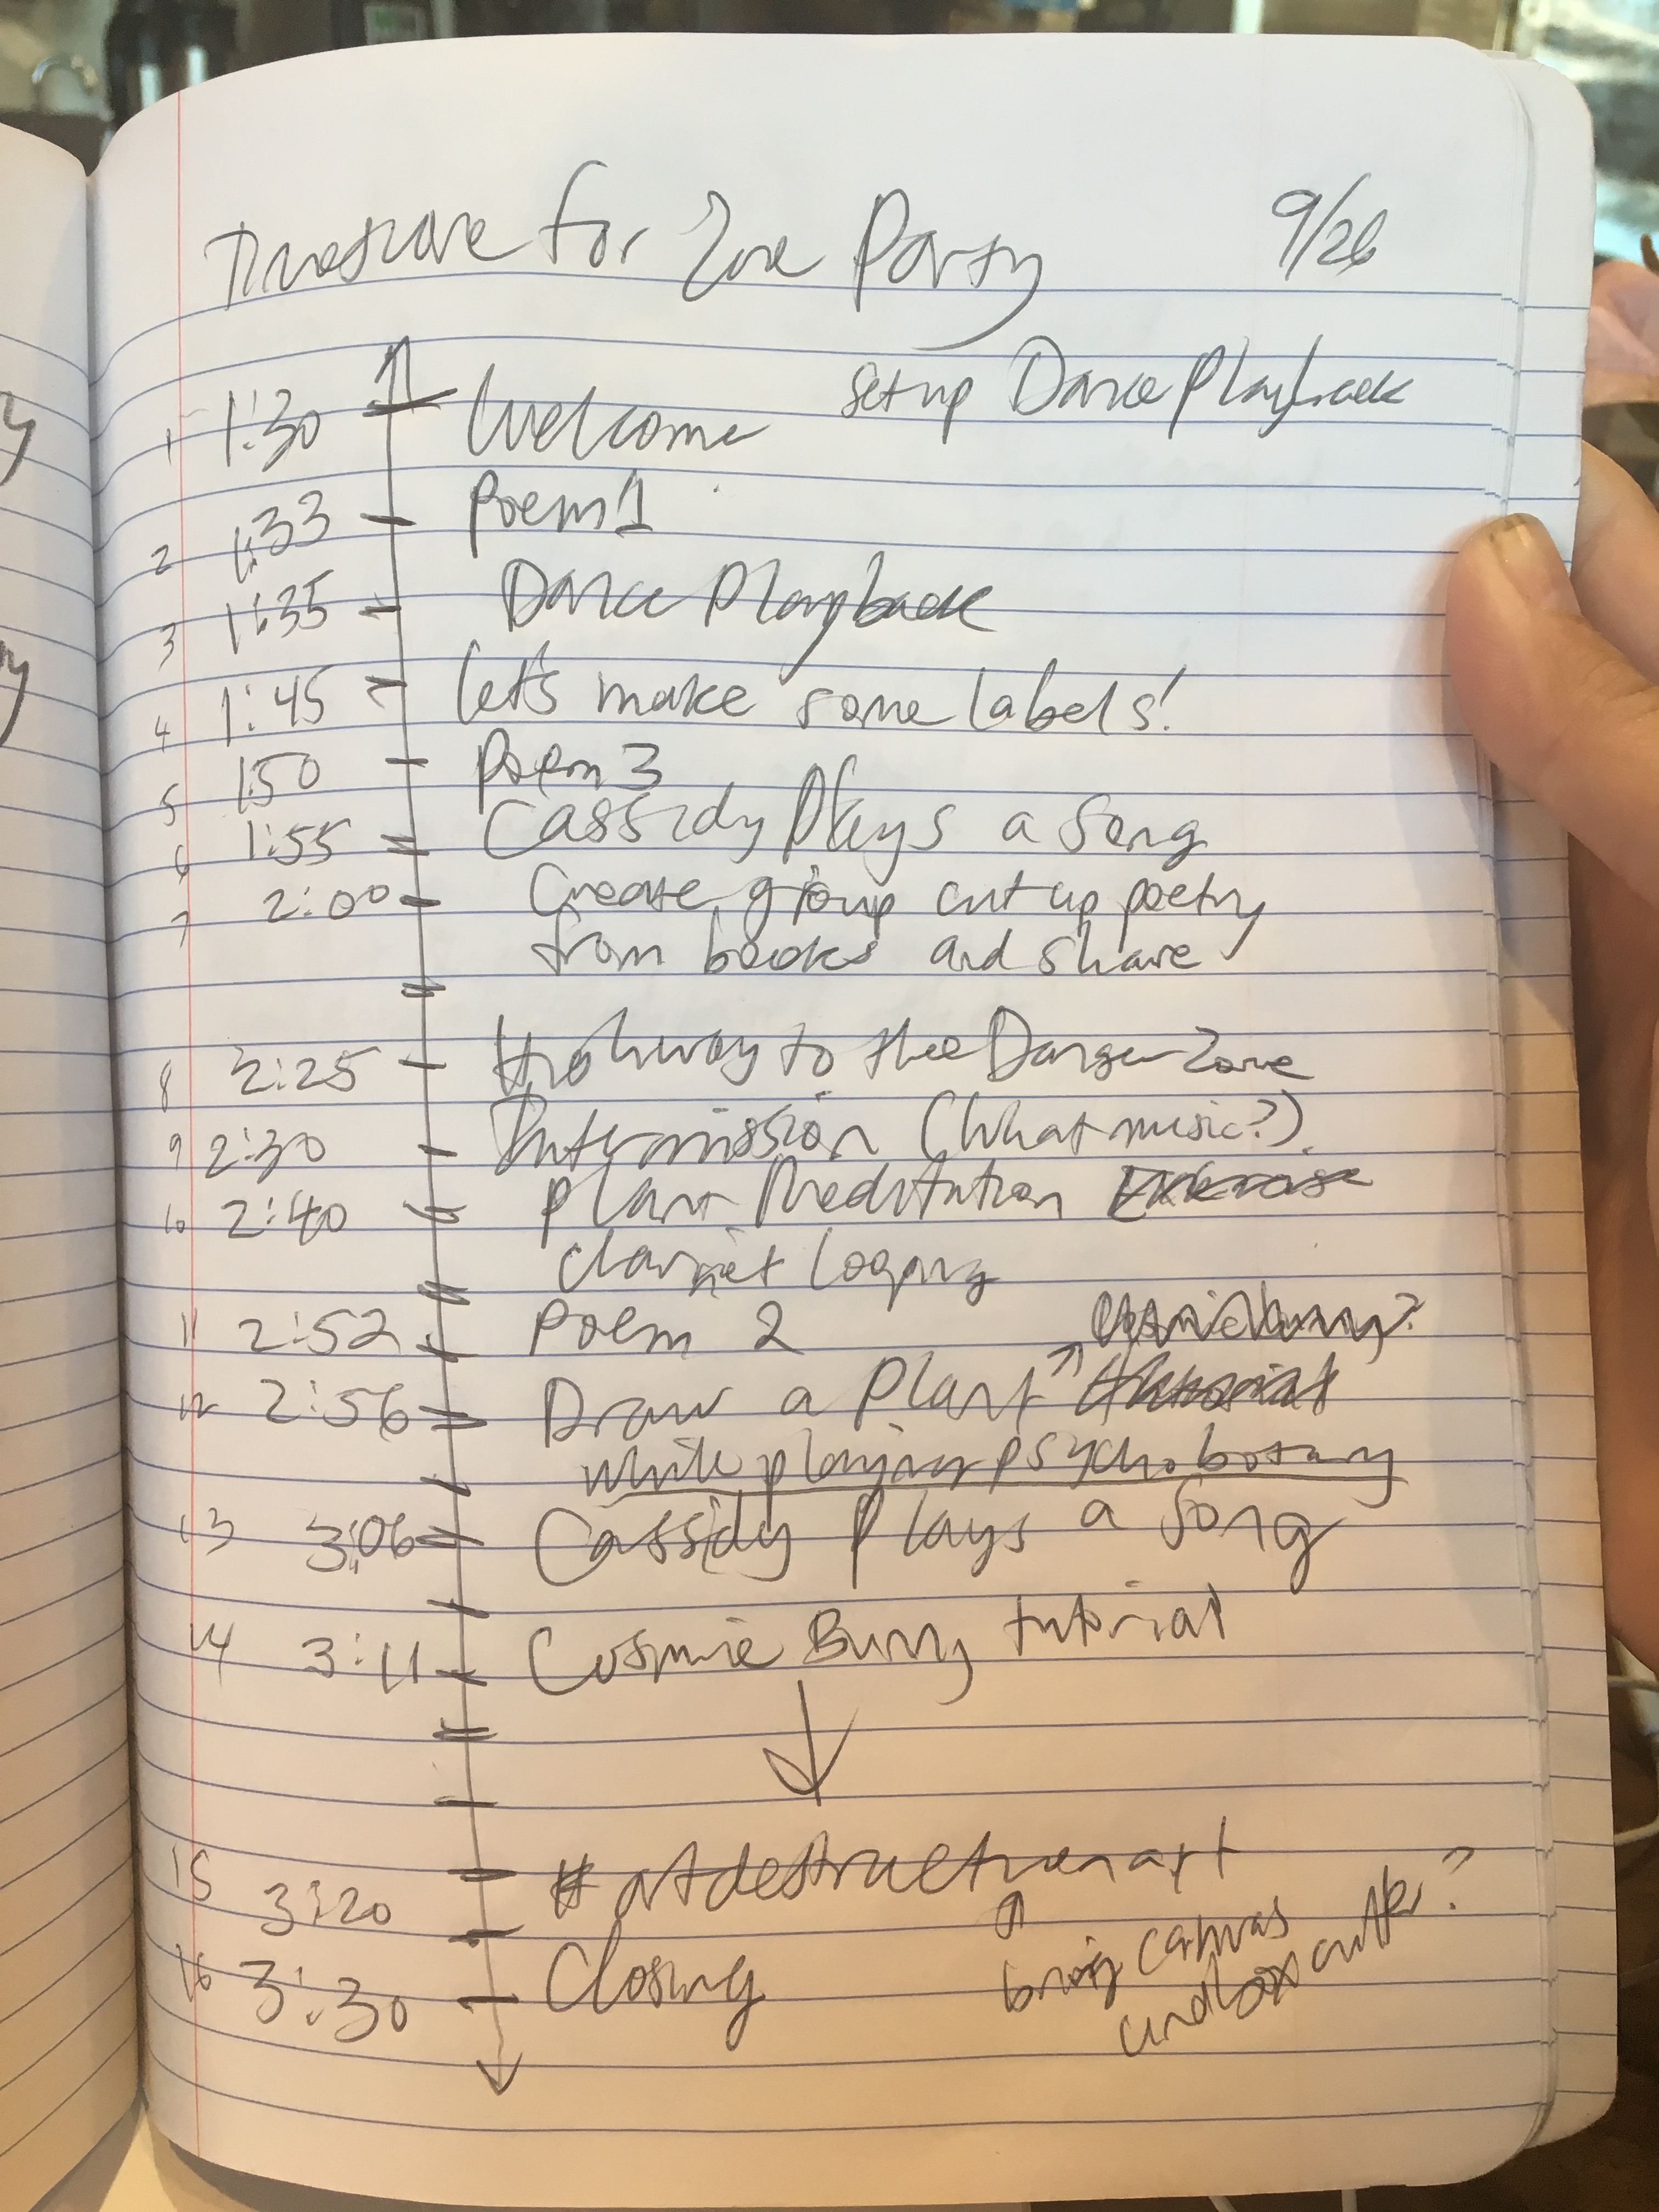 Timescore for Zine Party 9/26
set up Dance Playback
1 1:30 Welcome
2 1:33 Poem 1
3 1:35 Dance Playback
4 1:45 let's make some labels!
5 1:50 Poem 3
6 1:55 Cassidy Plays a Song
7 2:00 Create group cut up poetry
from books and share
8 2:25 Highway to the Danger Zone
9 2:30 Intermission (What music?)
10 2:40 Plant Meditation
clarinet looping
11 2:52 Poem 2
12 2:56 Draw a Plant
while playing psychobotany
13 3:06 Cassidy Plays a Song
14 3:11 Cosmic Bunny tutorial
15 3:20 #artdestructionart
bring canvas
and box cutter?
16 3:30 Closing